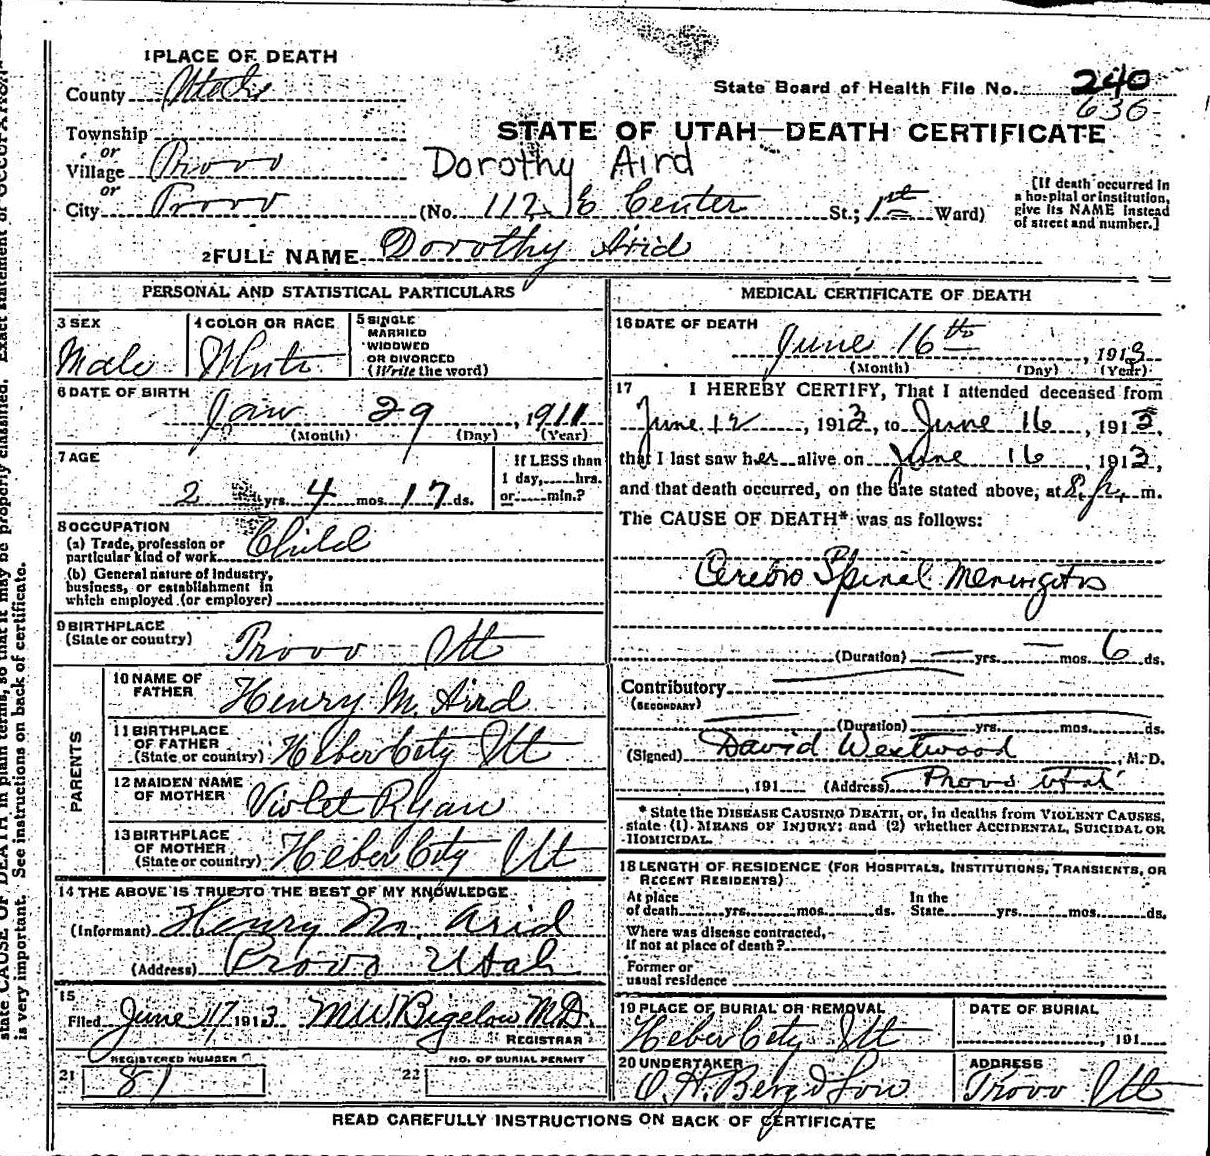 1 PLACE OF DEATH
County Utah
State Board of Health File No. 240
636
Township
or
Village Provo
or
City Provo
STATE OF UTAH—DEATH CERTIFICATE
Dorothy Aird
(No. 112 E Center St.; 1st Ward)
[If death occurred in
a hospital or institution,
give its NAME instead
of street and number.]
2 FULL NAME Dorothy Arid
PERSONAL AND STATISTICAL PARTICULARS
3 SEX
Male
4 COLOR OR RACE
White
5 SINGLE
MARRIED
WIDOWED
OR DIVORCED
(Write the word)
6 DATE OF BIRTH
Jan 29, 1911
(Month) (Day) (Year)
7 AGE
2 yrs. 4 mos. 17 ds.
If LESS than
1 day, hrs.
or min.?
8 OCCUPATION
(a) Trade, profession or
particular kind of work Child
(b) General nature of industry,
business, or establishment in
which employed (or employer)
9 BIRTHPLACE
(State or country) Provo Ut
PARENTS
10 NAME OF
FATHER Henry M. Aird
11 BIRTHPLACE
OF FATHER
(State or country) Heber City Ut
12 MAIDEN NAME
OF MOTHER Violet Ryan
13 BIRTHPLACE
OF MOTHER
(State or country) Heber City Ut
14 THE ABOVE IS TRUE TO THE BEST OF MY KNOWLEDGE
(Informant) Henry M. Arid
(Address) Provo Utah
15
Filed June 17 1913 M W. Bigelow M D.
REGISTRAR
REGISTERED NUMBER
21 81
NO. OF BURIAL PERMIT
22
MEDICAL CERTIFICATE OF DEATH
16 DATE OF DEATH
June 16th, 1913
(Month) (Day) (Year)
17 I HEREBY CERTIFY, That I attended deceased from
June 12, 1913, to June 16, 1913,
that I last saw her alive on June 16, 1913,
and that death occurred, on the date stated above, at 8. P. m.
The CAUSE OF DEATH* was as follows:
Cerebro Spinal Meningitis
(Duration) — yrs. — mos. 6 ds.
Contributory
(SECONDARY)
(Duration) yrs. mos. ds.
(Signed) David Westwood, M. D.
, 191 (Address) Provo Utah
* State the DISEASE CAUSING DEATH, or, in deaths from VIOLENT CAUSES,
state (1) MEANS OF INJURY; and (2) whether ACCIDENTAL, SUICIDAL OR
HOMICIDAL.
18 LENGTH OF RESIDENCE (FOR HOSPITALS, INSTITUTIONS, TRANSIENTS, OR
RECENT RESIDENTS)
At place
of death yrs. mos. ds.
In the
State yrs. mos. ds.
Where was disease contracted,
if not at place of death?
Former or
usual residence
19 PLACE OF BURIAL OR REMOVAL
Heber City Ut
DATE OF BURIAL
, 191
20 UNDERTAKER
ADDRESS
Provo Ut
READ CAREFULLY INSTRUCTIONS ON BACK OF CERTIFICATE
state CAUSE OF DEATH in plain terms, so that it may be properly classified. Exact statement of OCCUPATION
is very important. See instructions on back of certificate.